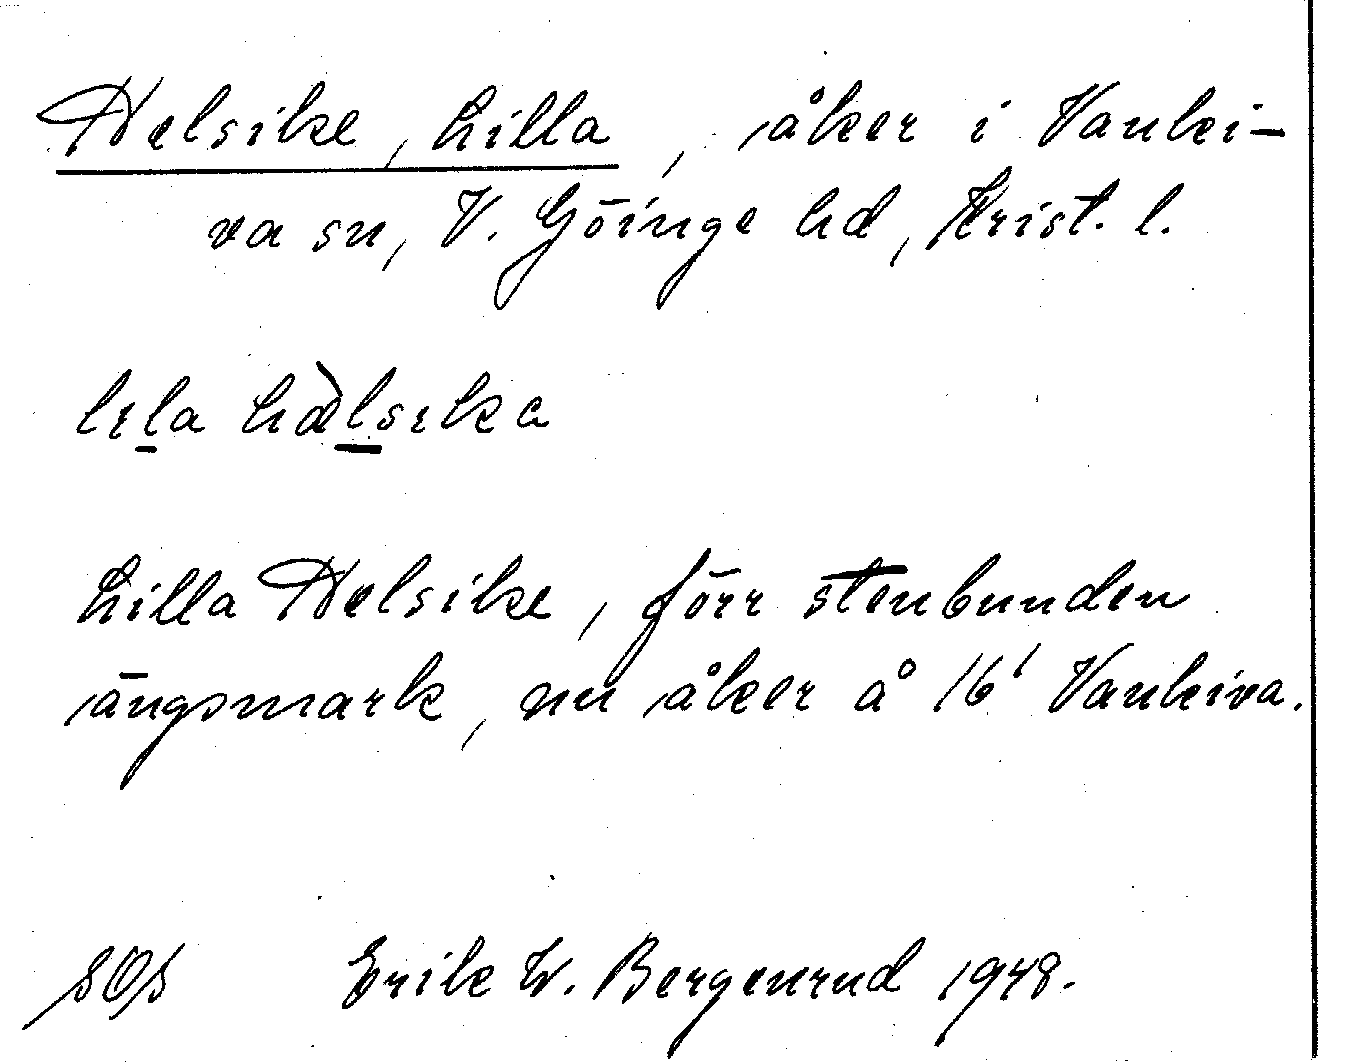 Helsike, Lilla, åker i Vanki-
va sn, V. Göinge hd, Krist. l.
lɩla hæ̀lsɩka
Lilla Helsike, förr stenbunden
ängsmark, nu åker å 16¹ Vankiva.
SOS Erik W. Bergenrud 1948.